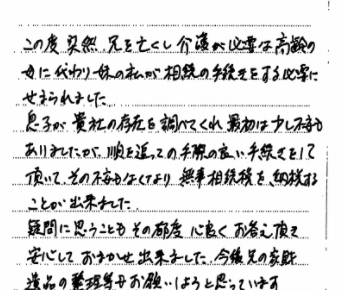 この度 突然 兄を亡くし 介護が必要な高齢の
母に代わり 妹の私が 相続の手続きをする必要に
せまられました
息子が 貴社の存在を 調べてくれ 最初は少し不安も
ありましたが、順を追っての手際の良い手続きをして
頂いて、その不安もなくなり 無事相続税を、納税する
ことが出来ました
疑問に思うことも その都度 心良く お答え頂き
安心して おまかせ出来ました 今後兄の家財
遺品の整理等もお願いしようと思っています